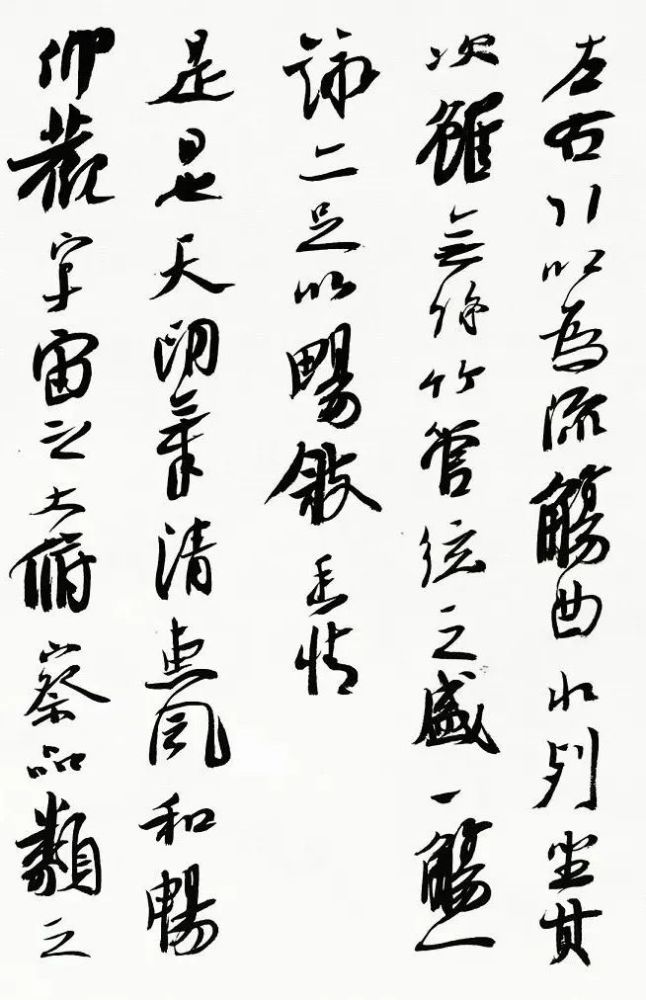 左右引以為流觴曲水列坐其
次雖無絲竹管絃之盛一觴一
詠亦足以暢敘幽情
是日也天朗氣清惠風和暢
仰觀宇宙之大俯察品類之